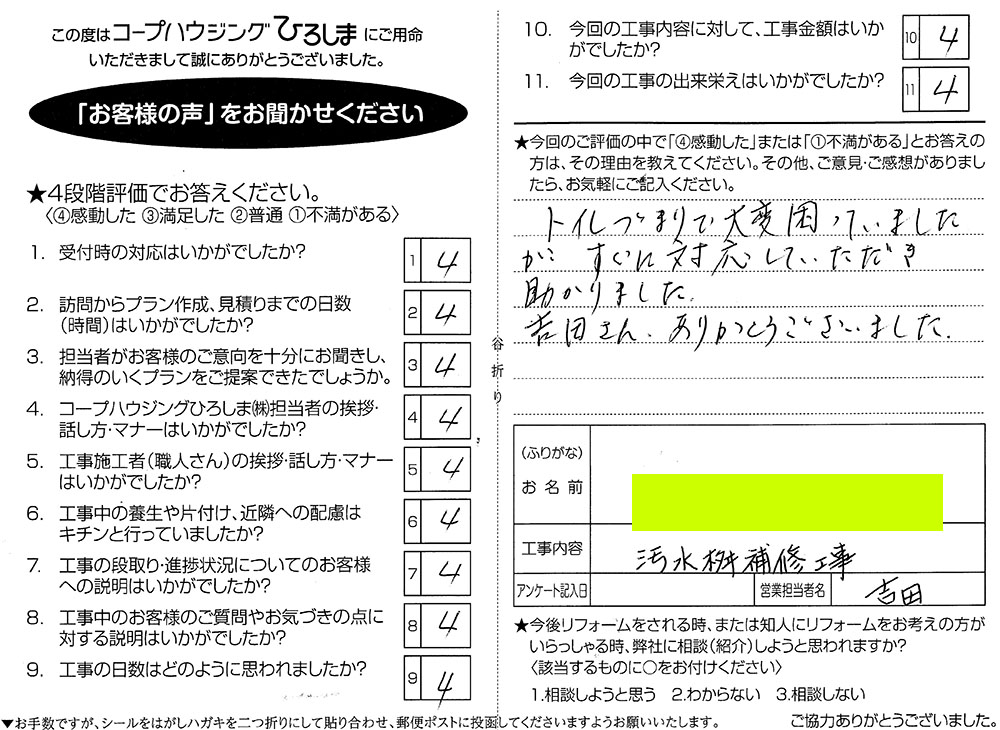 この度はコープハウジングひろしまにご用命
いただきまして誠にありがとうございました。
「お客様の声」をお聞かせください
★4段階評価でお答えください。
〈④感動した ③満足した ②普通 ①不満がある〉
1. 受付時の対応はいかがでしたか?
1 4
2. 訪問からプラン作成、見積りまでの日数
(時間)はいかがでしたか?
2 4
3. 担当者がお客様のご意向を十分にお聞きし、
納得のいくプランをご提案できたでしょうか。
3 4
4. コープハウジングひろしま㈱担当者の挨拶・
話し方・マナーはいかがでしたか?
4 4
5. 工事施工者(職人さん)の挨拶・話し方・マナー
はいかがでしたか?
5 4
6. 工事中の養生や片付け、近隣への配慮は
キチンと行っていましたか?
6 4
7. 工事の段取り・進捗状況についてのお客様
への説明はいかがでしたか?
7 4
8. 工事中のお客様のご質問やお気づきの点に
対する説明はいかがでしたか?
8 4
9. 工事の日数はどのように思われましたか?
9 4
谷折り
10. 今回の工事内容に対して、工事金額はいか
がでしたか?
10 4
11. 今回の工事の出来栄えはいかがでしたか?
11 4
★今回のご評価の中で「④感動した」または「①不満がある」とお答えの
方は、その理由を教えてください。その他、ご意見・ご感想がありまし
たら、お気軽にご記入ください。
トイレづまりで大変困っていました
が、すぐに対応していただき
助かりました。
吉田さん、ありがとうございました。
(ふりがな)
お名前
工事内容 汚水桝補修工事
アンケート記入日 営業担当者名 吉田
★今後リフォームをされる時、または知人にリフォームをお考えの方が
いらっしゃる時、弊社に相談(紹介)しようと思われますか?
〈該当するものに○をお付けください〉
1.相談しようと思う 2.わからない 3.相談しない
▼お手数ですが、シールをはがしハガキを二つ折りにして貼り合わせ、郵便ポストに投函してくださいますようお願いいたします。
ご協力ありがとうございました。